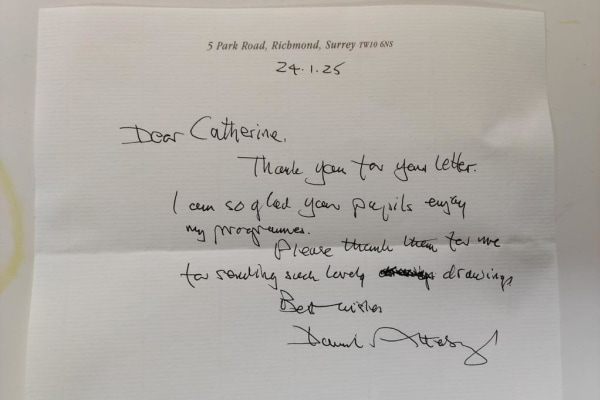 5 Park Road, Richmond, Surrey TW10 6NS
24.1.25
Dear Catherine,
Thank you for your letter.
I am so glad your pupils enjoy
my programmes.
Please thank them for me
for sending such lovely drawings
Best wishes
David Attenborough